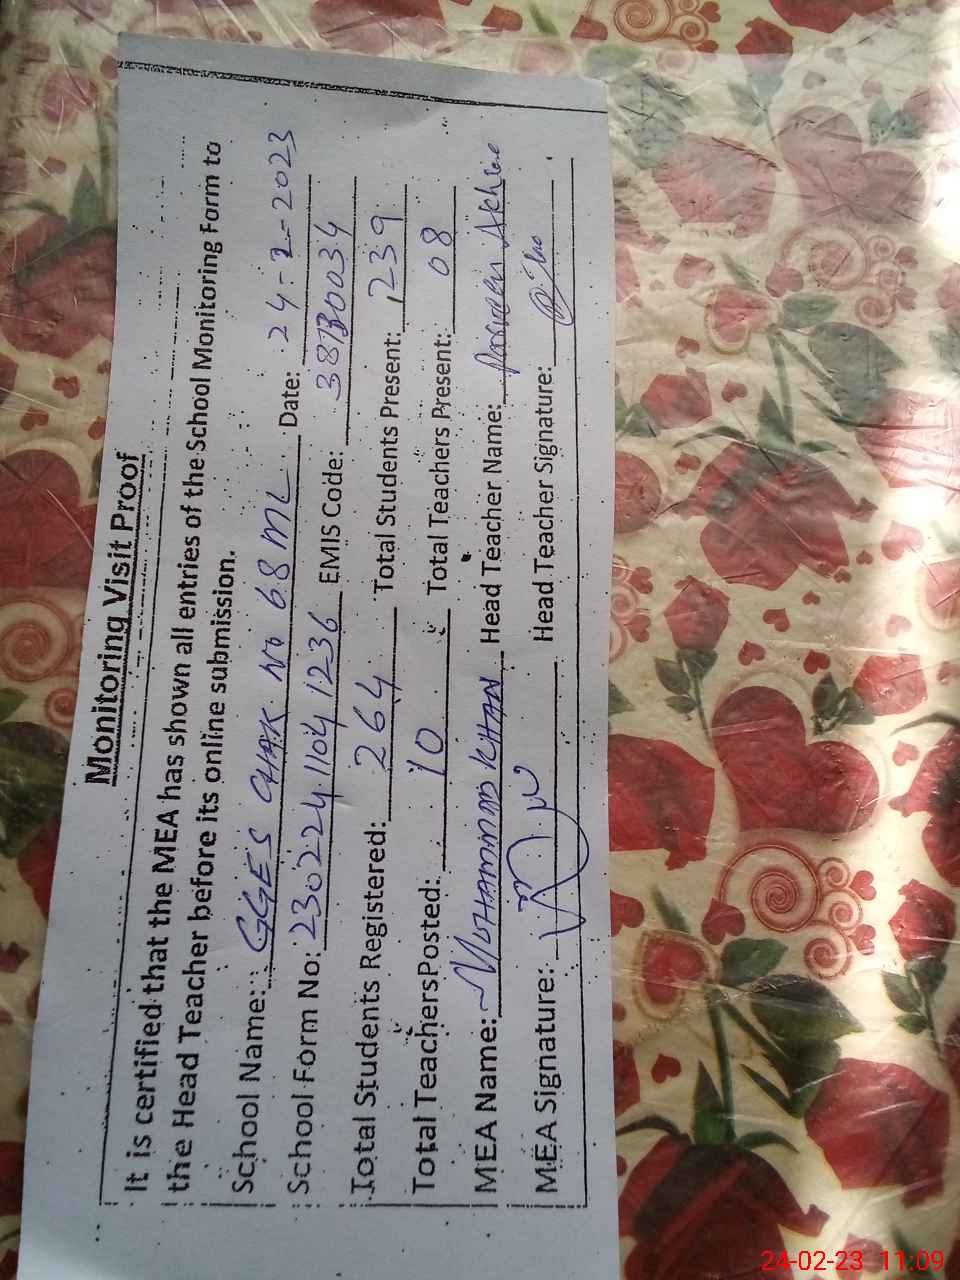 Monitoring Visit Proof
It is certified that the MEA has shown all entries of the School Monitoring Form to
the Head Teacher before its online submission.
School Name: GGES CHAK No 68 ML Date: 24-2-2023
School Form No: 230224 1104 1236 EMIS Code:
Total Students Registered: 264 Total Students Present: 239
Total Teachers Posted: 10 Total Teachers Present: 08
MEA Name: MUHAMMAD KHAN Head Teacher Name: Akhtar
MEA Signature: Head Teacher Signature:
24-02-23 11:09